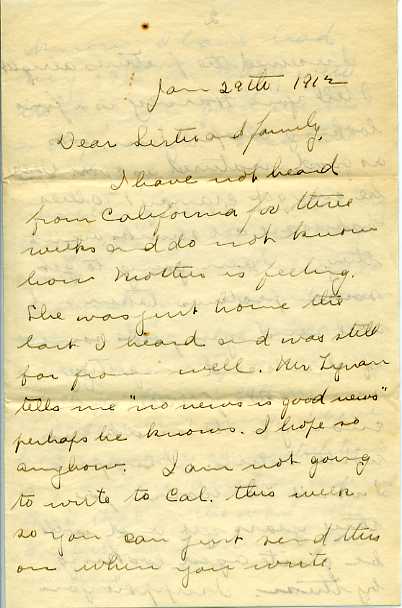 Jan 29th, 1912
Dear Sister and family,
I have not heard
from California for three
weeks and do not know
how Mother is feeling.
She was just home the
last I heard and was still
far from well. Mr.
tells me "no news is good news"
perhaps he knows. I hope so
anyhow. I am not going
to write to Cal. this week
so you can just send this
on when you write.